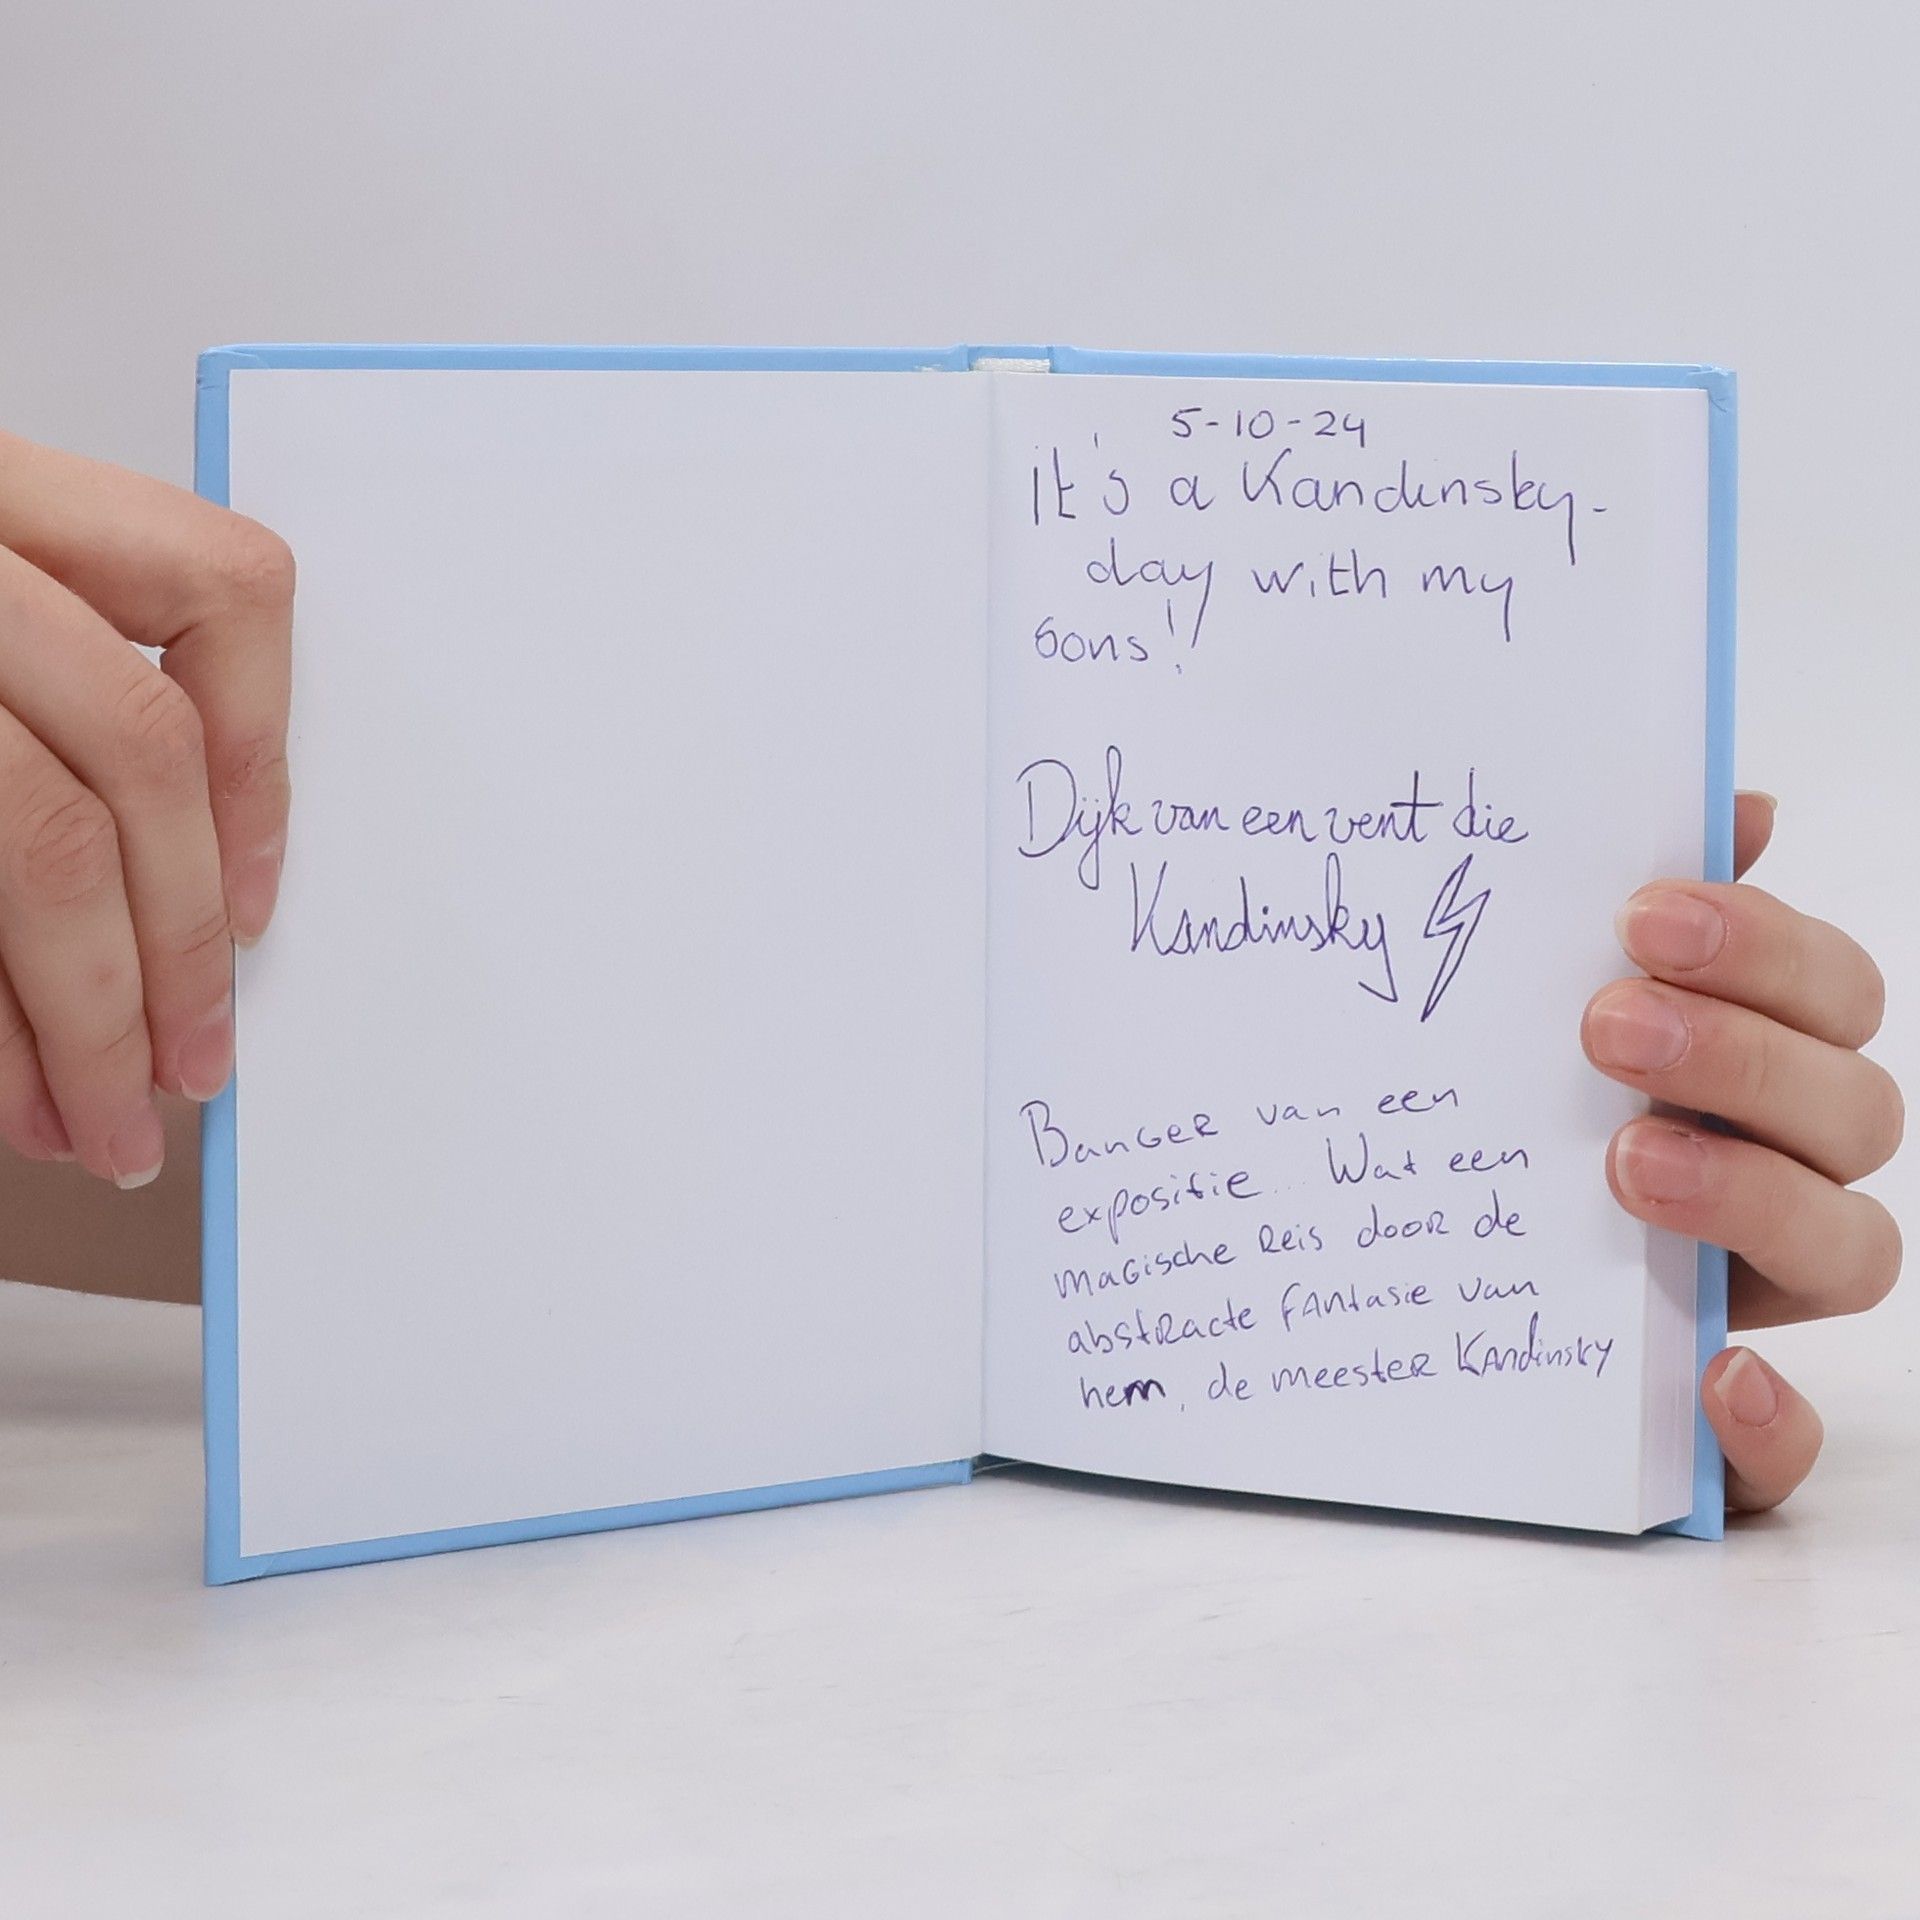 5-10-24
it's a Kandinsky-
day with my
sons!
Dijk van een vent die
Kandinsky
Banger van een
expositie... Wat een
magische reis door de
abstracte fantasie van
hem, de meester Kandinsky